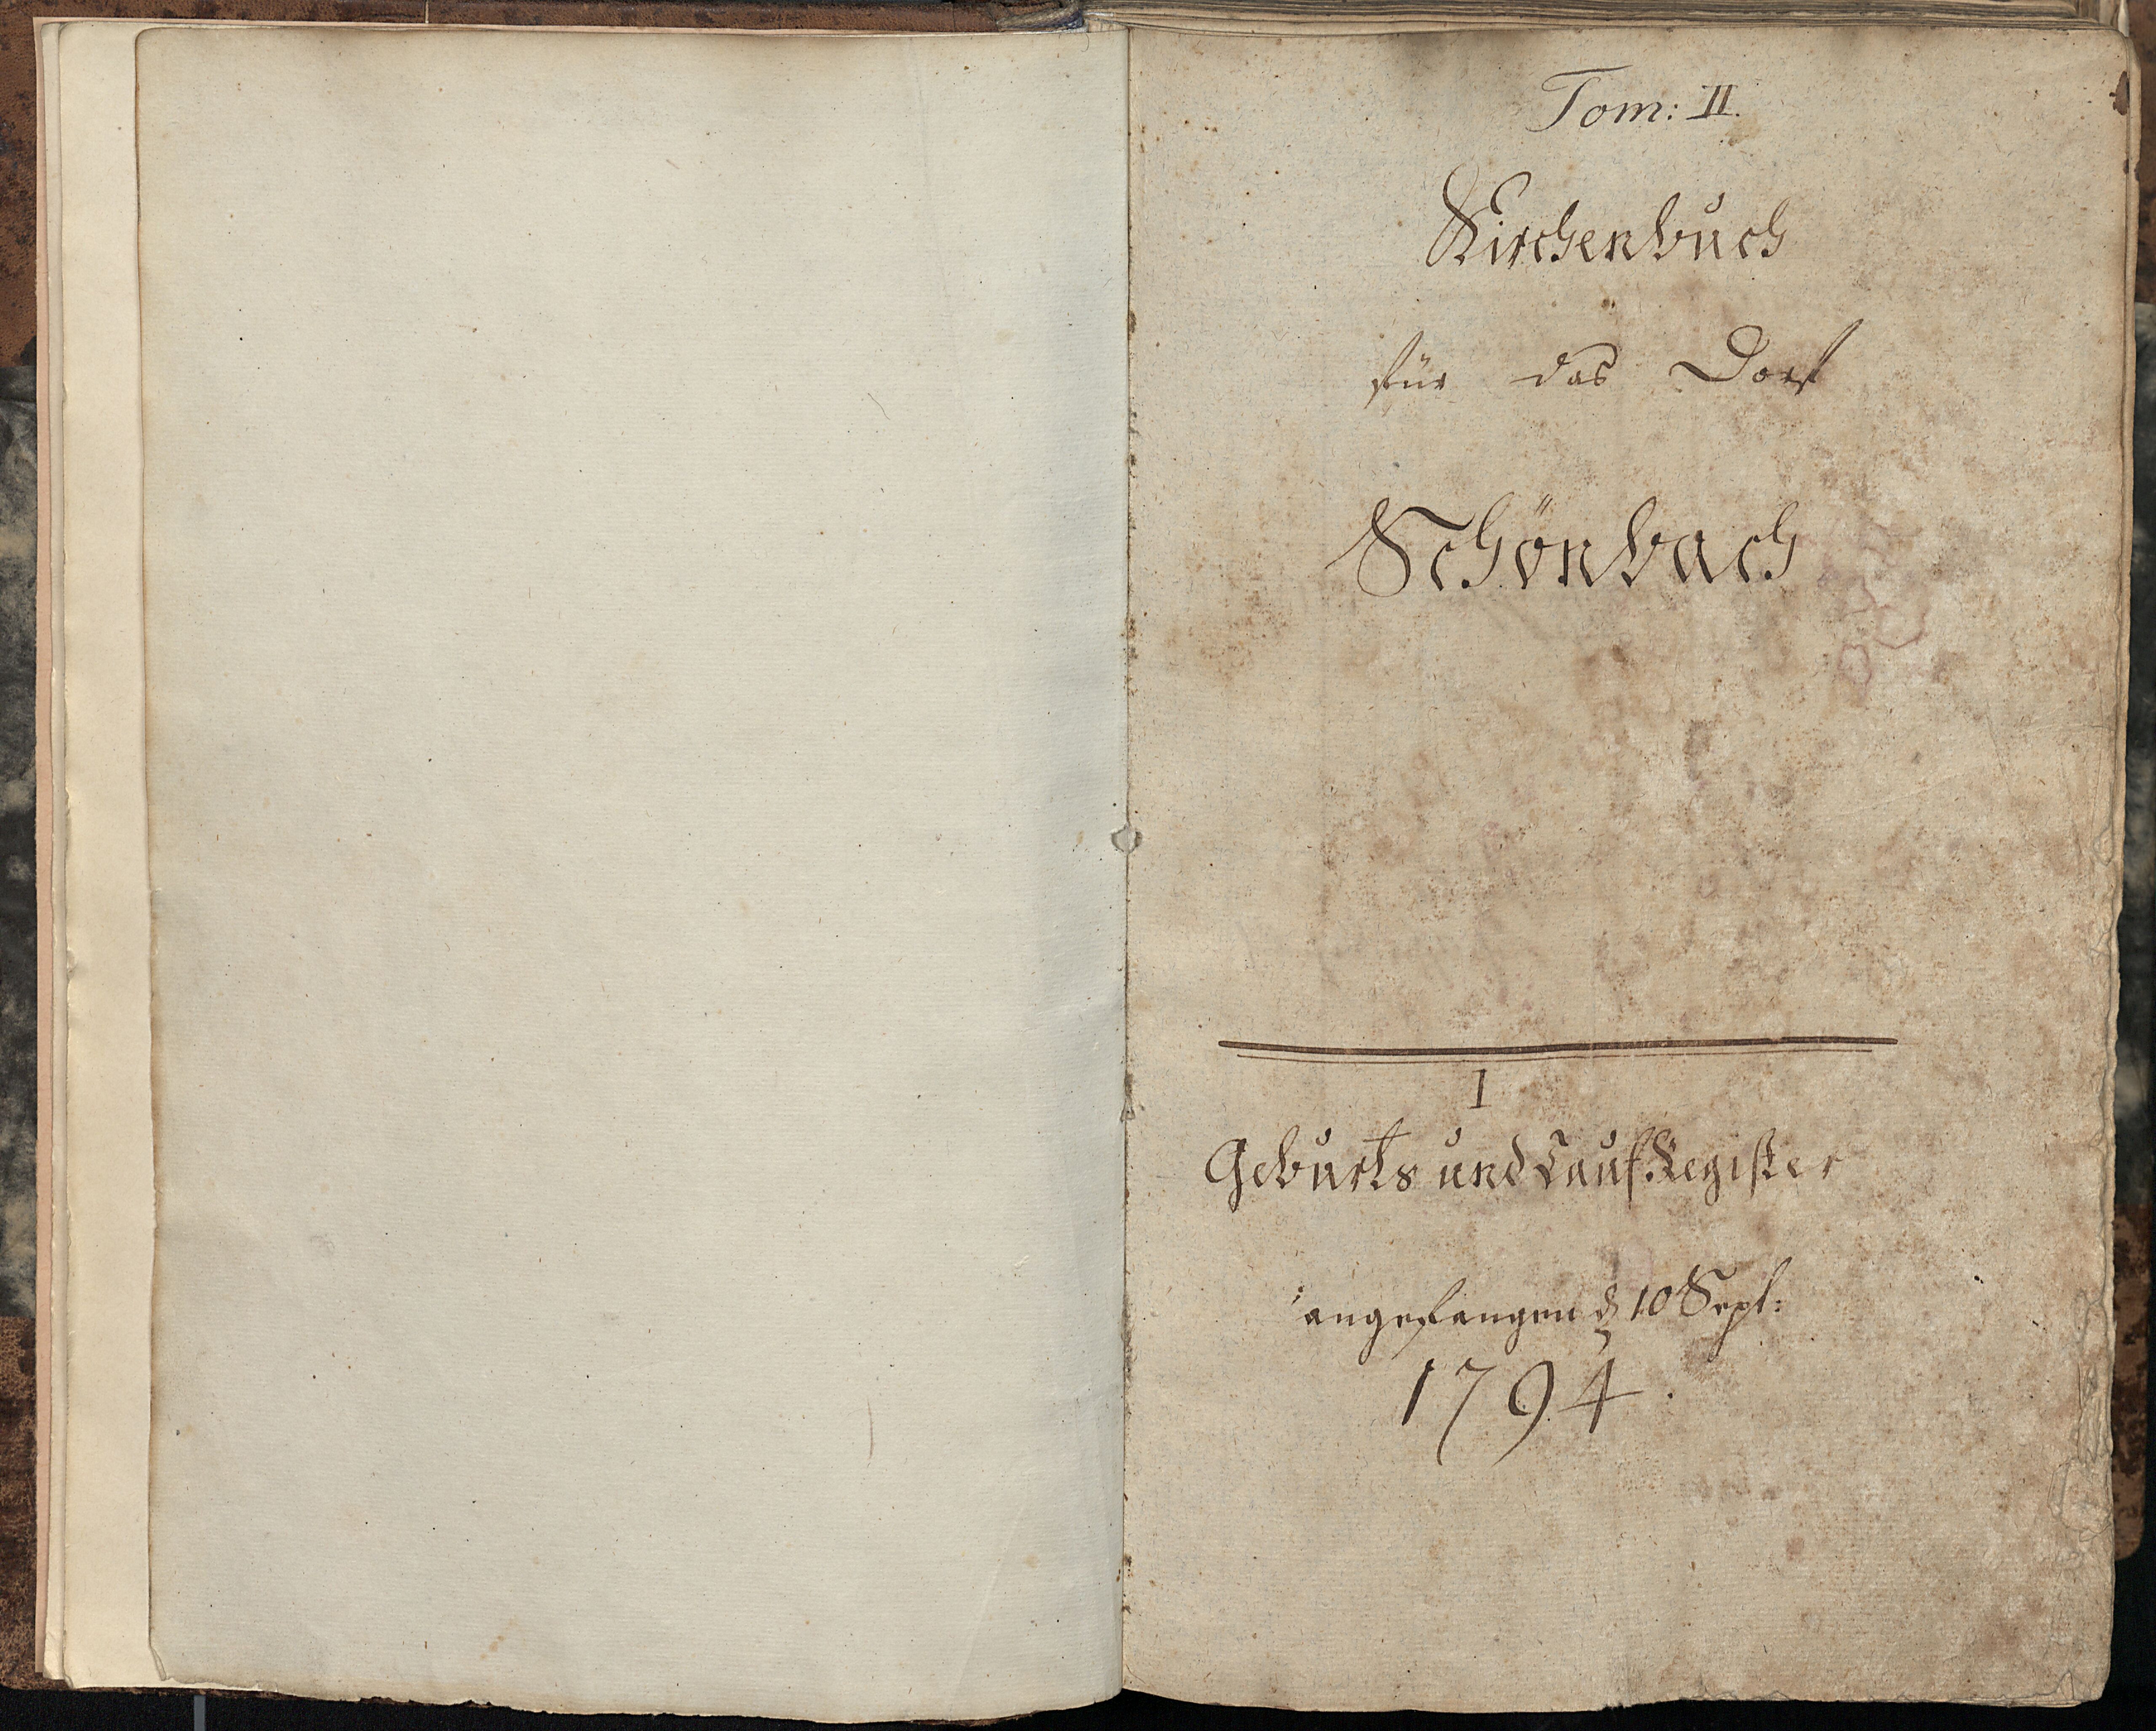 Tom: II.
Kirchenbuch
für das Dorf
Schönbach
I
Geburts und Tauf Register
angefangen d 10 Sept:
1794.